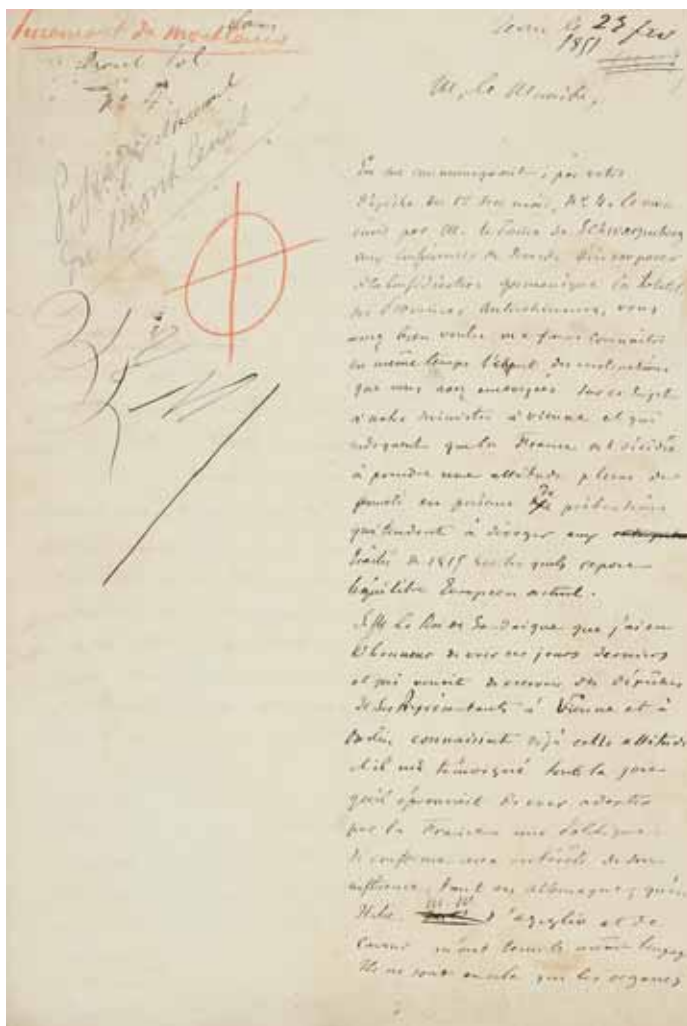 Percement de
Mont Cenis
Passage
du Mont Cenis
le 23
1851
M. le Ministre,
En me communiquant, par votre
dépêche du 15 de ce mois, N° 4, le
par M. le Prince de Schwarzenberg
aux conférences de Dresde d'incorporer
à la Confédération germanique la totalité
des Provinces Autrichiennes, vous
avez bien voulu me faire connaître
en même temps l'esprit des instructions
que vous avez envoyées sur ce sujet
à notre ministre à Vienne et qui
indiquent que la France est décidée
à prendre une attitude pleine de
fermeté en présence de prétentions
qui tendent à déroger aux
traités de 1815 sur lesquels repose
l'équilibre Européen actuel.
S. M. le Roi de Sardaigne que j'ai eu
l'honneur de voir ces jours derniers
et qui venait de recevoir des dépêches
de ses Représentants à Vienne et à
Berlin, connaissait déjà cette attitude
et il m'a témoigné toute la joie
qu'il éprouvait de voir adopter
par la France une politique
si conforme aux intérêts de son
influence, tant en Allemagne, qu'en
Italie. M. M. d'Azeglio et de
Cavour m'ont tenu le même langage
Ils ne sont en cela que les organes